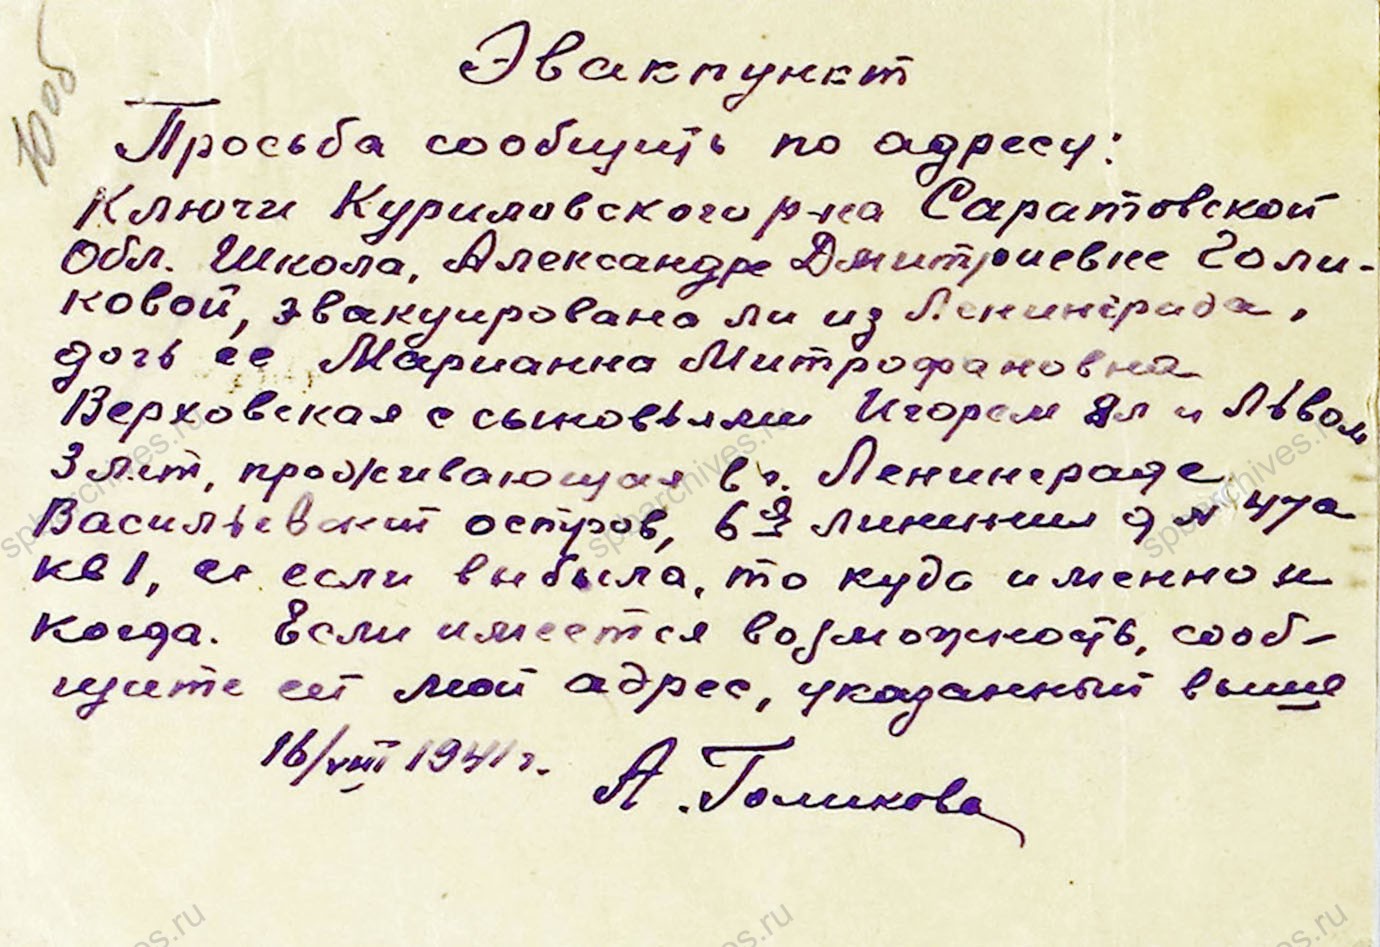 Эвакпункт
Просьба сообщить по адресу:
Ключи Куриловского р-на Саратовской
Обл. Школа, Александре Дмитриевне Голи-
ковой, эвакуирована ли из Ленинграда,
дочь ее Марианна Митрофановна
Верховская с сыновьями Игорем 8л и Львом
3 лет, проживающая в г. Ленинграде
Васильевский остров, 6я линия д № 47а
кв 1, и если выбыла, то куда именно и
когда. Если имеется возможность, сооб-
щите ей мой адрес, указанный выше
16/VIII 1941 г. А. Голикова
spbarchives.ru
spbarchives.ru
spbarchives.ru